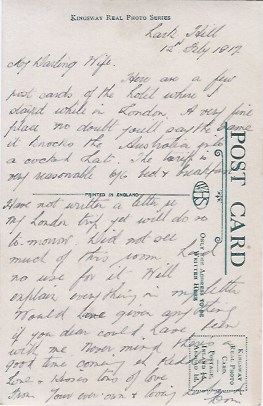 KINGSWAY REAL PHOTO SERIES
Lark Hill
12th July 1917
My Darling Wife.
Here are a few
post cards of the hotel where I
stayed while in London. A very fine
place no doubt you'll say the same
it knocks the Australia into
a cocked hat. The tariff is
very reasonable 6/6 bed & breakfast
PRINTED IN ENGLAND
Have not written a letter re
my London trip yet will do so
to-morrow. Did not see
much of this room had
no use for it Will
explain everything in my letter
Would have given anything
if you dear could have been
with me Never mind the
good time coming
Love & kisses tons of love
From Your ever own & loving
POST CARD
ONLY THE ADDRESS TO BE
WRITTEN HERE
KINGSWAY
REAL PHOTO
CARD
POSTAGE